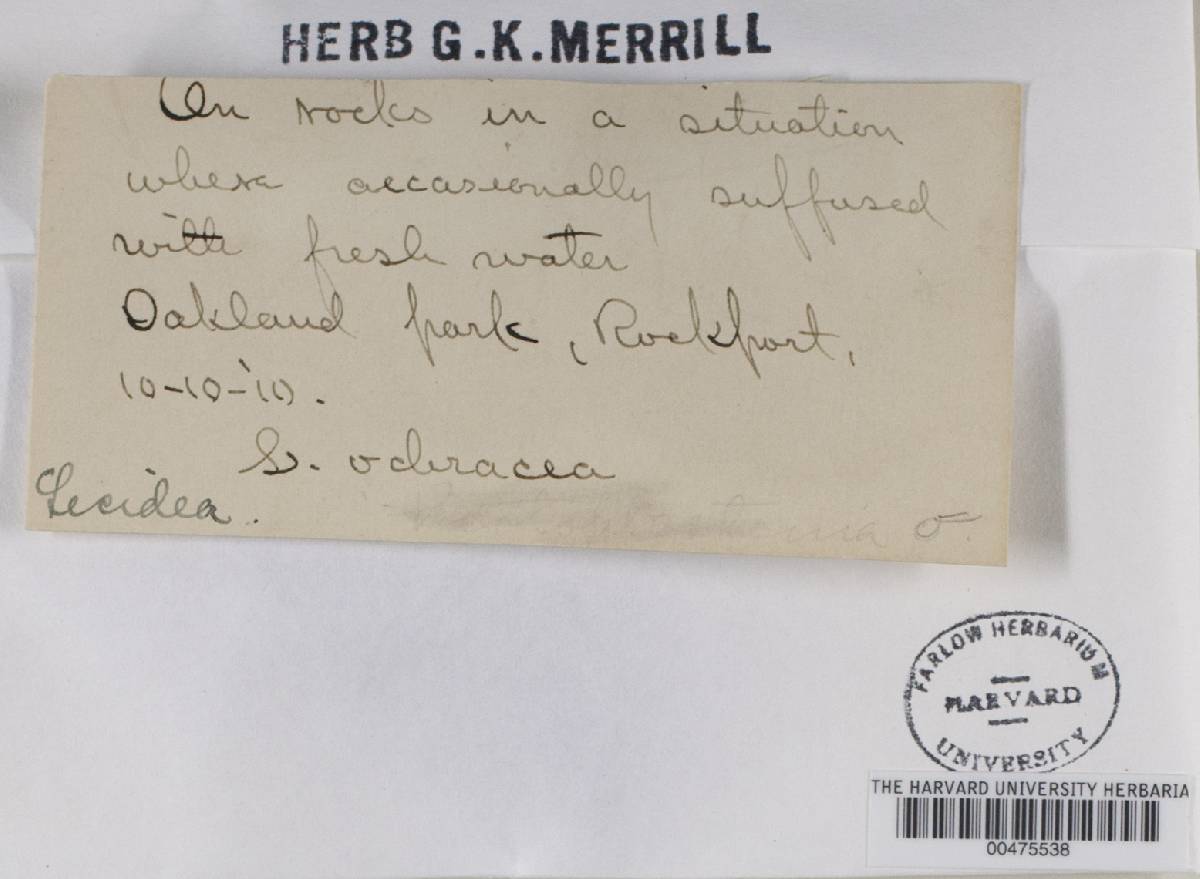 HERB G.K. MERRILL
On rocks in a situation
where occasionally suffused
with fresh water
Oakland park, Rockport,
10-10-'10.
L. ochracea
Lecidea.
FARLOW HERBARIUM
HARVARD
UNIVERSITY
THE HARVARD UNIVERSITY HERBARIA
00475538